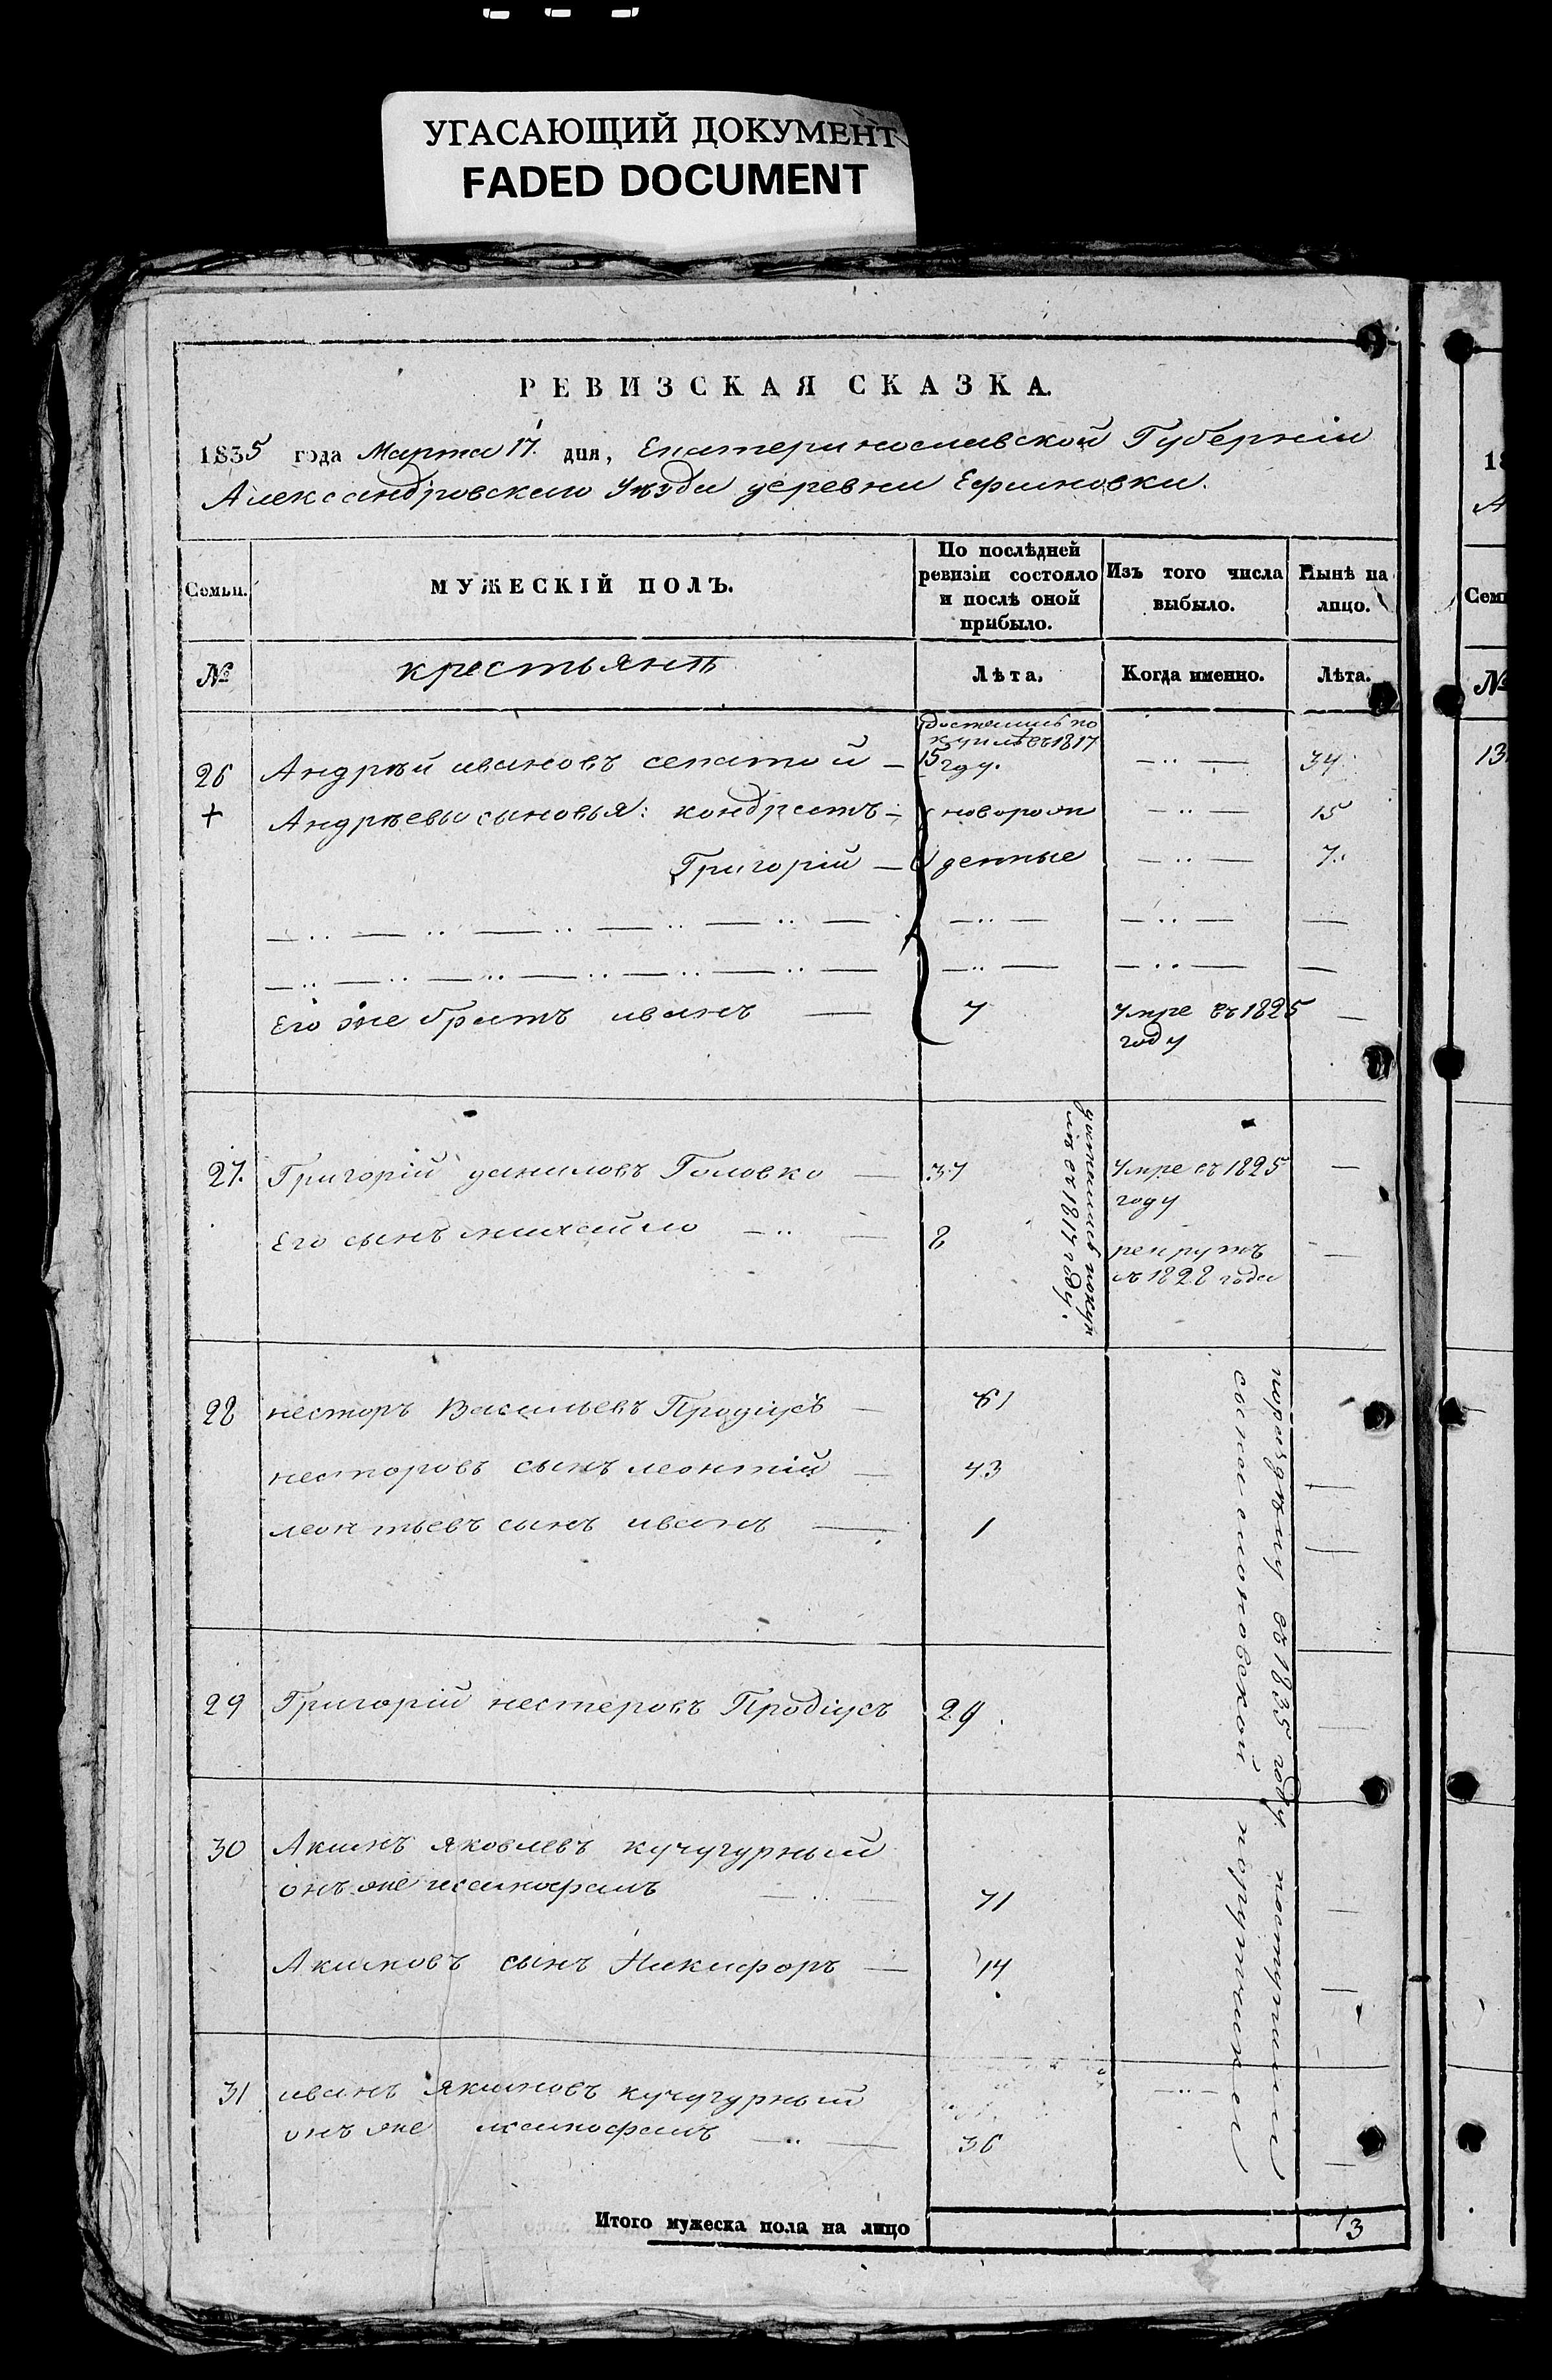 УГАСАЮЩИЙ ДОКУМЕНТ
FADED DOCUMENT
РЕВИЗСКАЯ СКАЗКА.
1835 года Марта 17. дня, Екатеринославской Губерніи
Александровскаго Уѣзда деревни Ефимовки.
Семьи.
МУЖЕСКІЙ ПОЛЪ.
По послѣдней
ревизіи состояло
и послѣ оной
прибыло.
Изъ того числа
выбыло.
Нынѣ на
лицо.
№
крестьянъ
Лѣта.
Когда именно.
Лѣта.
достались по
купле въ 1817
26 Андрѣй ивановъ сепатой — 15 году. — 34
+ Андрѣевы сыновья: кондратъ — новорож — 15
Григорій — денные — 7.
его же братъ иванъ — 7 умре въ 1825 —
году
27. Григорій даниловъ Головко — 37 умре въ 1825 —
году
его сынъ михайло — 8 рекрутъ —
въ 1828 года
въ 1817 году.
28 несторъ Васильевъ Продіусъ — 61
несторовъ сынъ леонтій — 43 —
леонтьевъ сынъ иванъ — 1 —
29 Григорій нестеровъ Продіусъ 29 —
по раздѣлу въ 1835 году. поступили
30 Акимъ яковлевъ кучугурный
онъ же 71 —
Акимовъ сынъ Никифоръ — 14 —
31 иванъ якимовъ кучугурный
онъ же — 36 —
Итого мужеска пола на лицо
3
18
А
Семь
№
13